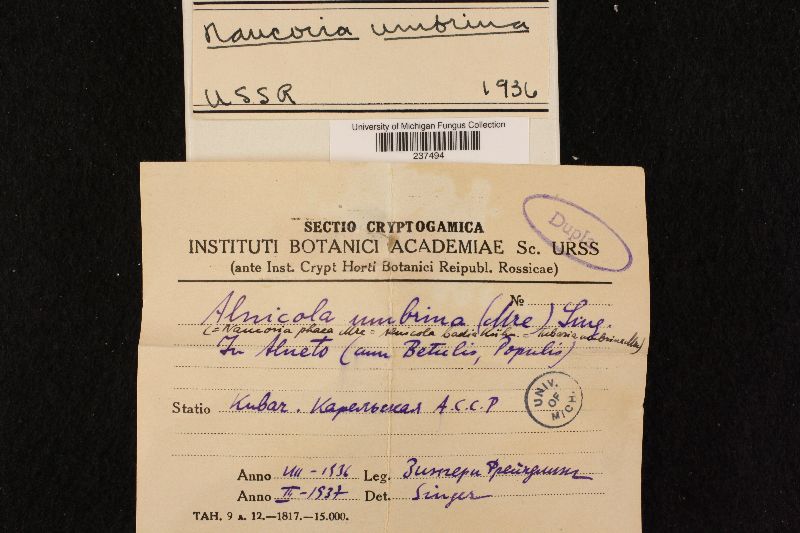 Naucoria umbrina
USSR 1936
University of Michigan Fungus Collection
237494
Dupla
SECTIO CRYPTOGAMICA
INSTITUTI BOTANICI ACADEMIAE Sc. URSS
(ante Inst. Crypt Horti Botanici Reipubl. Rossicae)
№
Alnicola umbrina (Mre) Sing.
(= Naucoria phaea Mre = Alnicola badia Kühn. =
In Alneto (cum Betulis, Populis)
Statio Кивач. Карельская А.С.С.Р
UNIV. OF MICH.
Anno VIII-1936 Leg. Зингер и Фрейндлинг
Anno III-1937 Det. Singer
ТАН. 9 а. 12.—1817.—15.000.